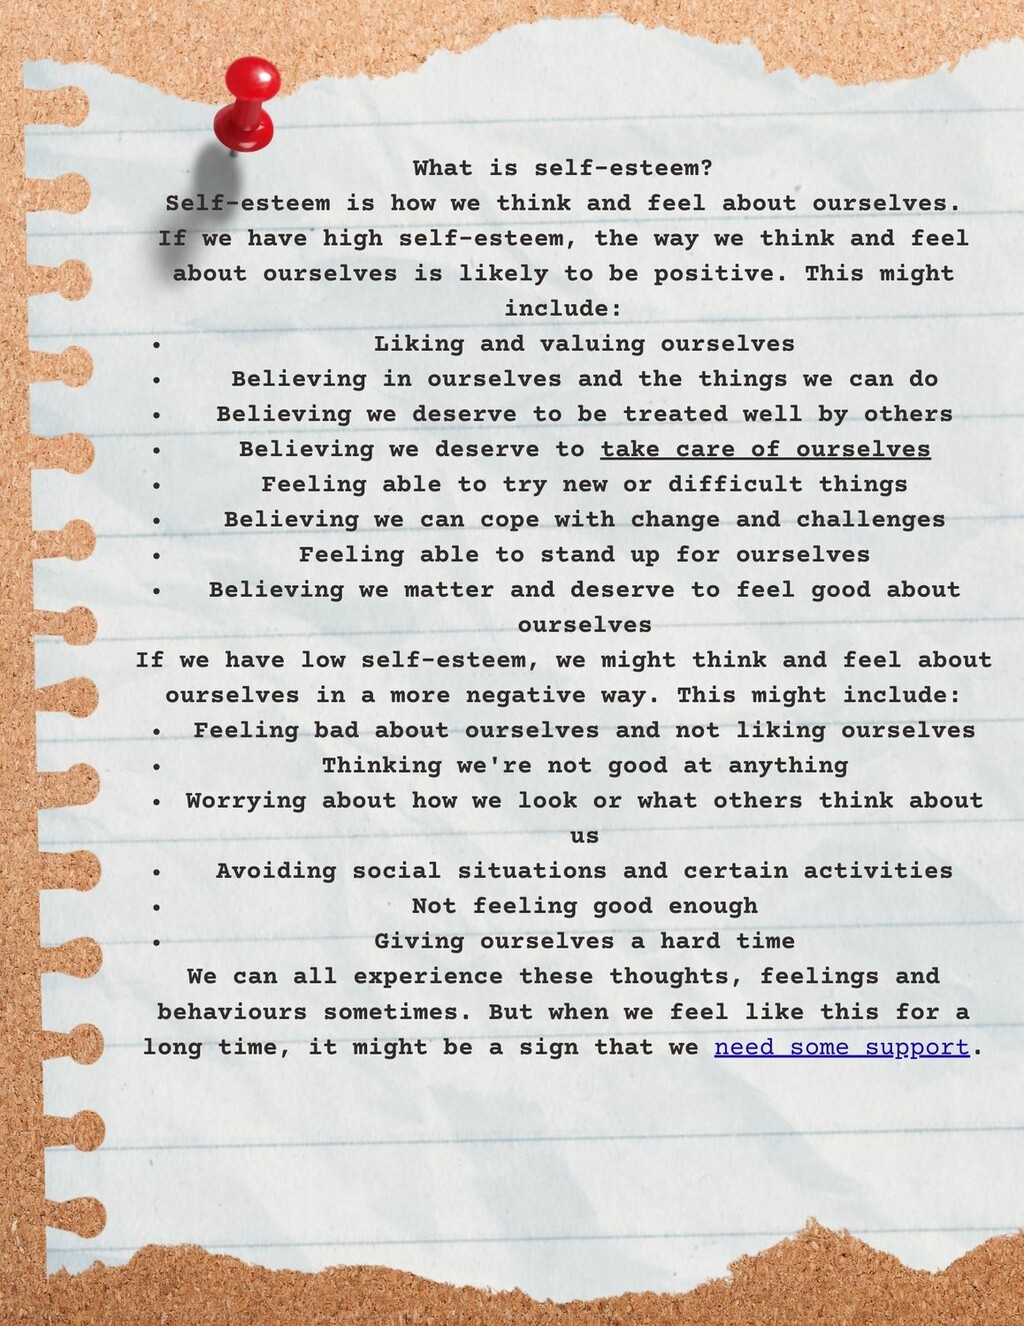 What is self-esteem?
Self-esteem is how we think and feel about ourselves.
If we have high self-esteem, the way we think and feel
about ourselves is likely to be positive. This might
include:
• Liking and valuing ourselves
• Believing in ourselves and the things we can do
• Believing we deserve to be treated well by others
• Believing we deserve to take care of ourselves
• Feeling able to try new or difficult things
• Believing we can cope with change and challenges
• Feeling able to stand up for ourselves
• Believing we matter and deserve to feel good about
ourselves
If we have low self-esteem, we might think and feel about
ourselves in a more negative way. This might include:
• Feeling bad about ourselves and not liking ourselves
• Thinking we're not good at anything
• Worrying about how we look or what others think about
us
• Avoiding social situations and certain activities
• Not feeling good enough
• Giving ourselves a hard time
We can all experience these thoughts, feelings and
behaviours sometimes. But when we feel like this for a
long time, it might be a sign that we need some support.